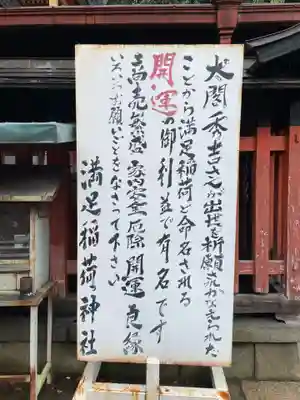 太閤秀吉さんが出世を祈願されかなえられた
ことから満足稲荷と命名される
開運の御利益で有名です
商売繁盛 家内安全 厄除 開運 良縁
いろいろお願いごとをなさって下さい
満足稲荷神社